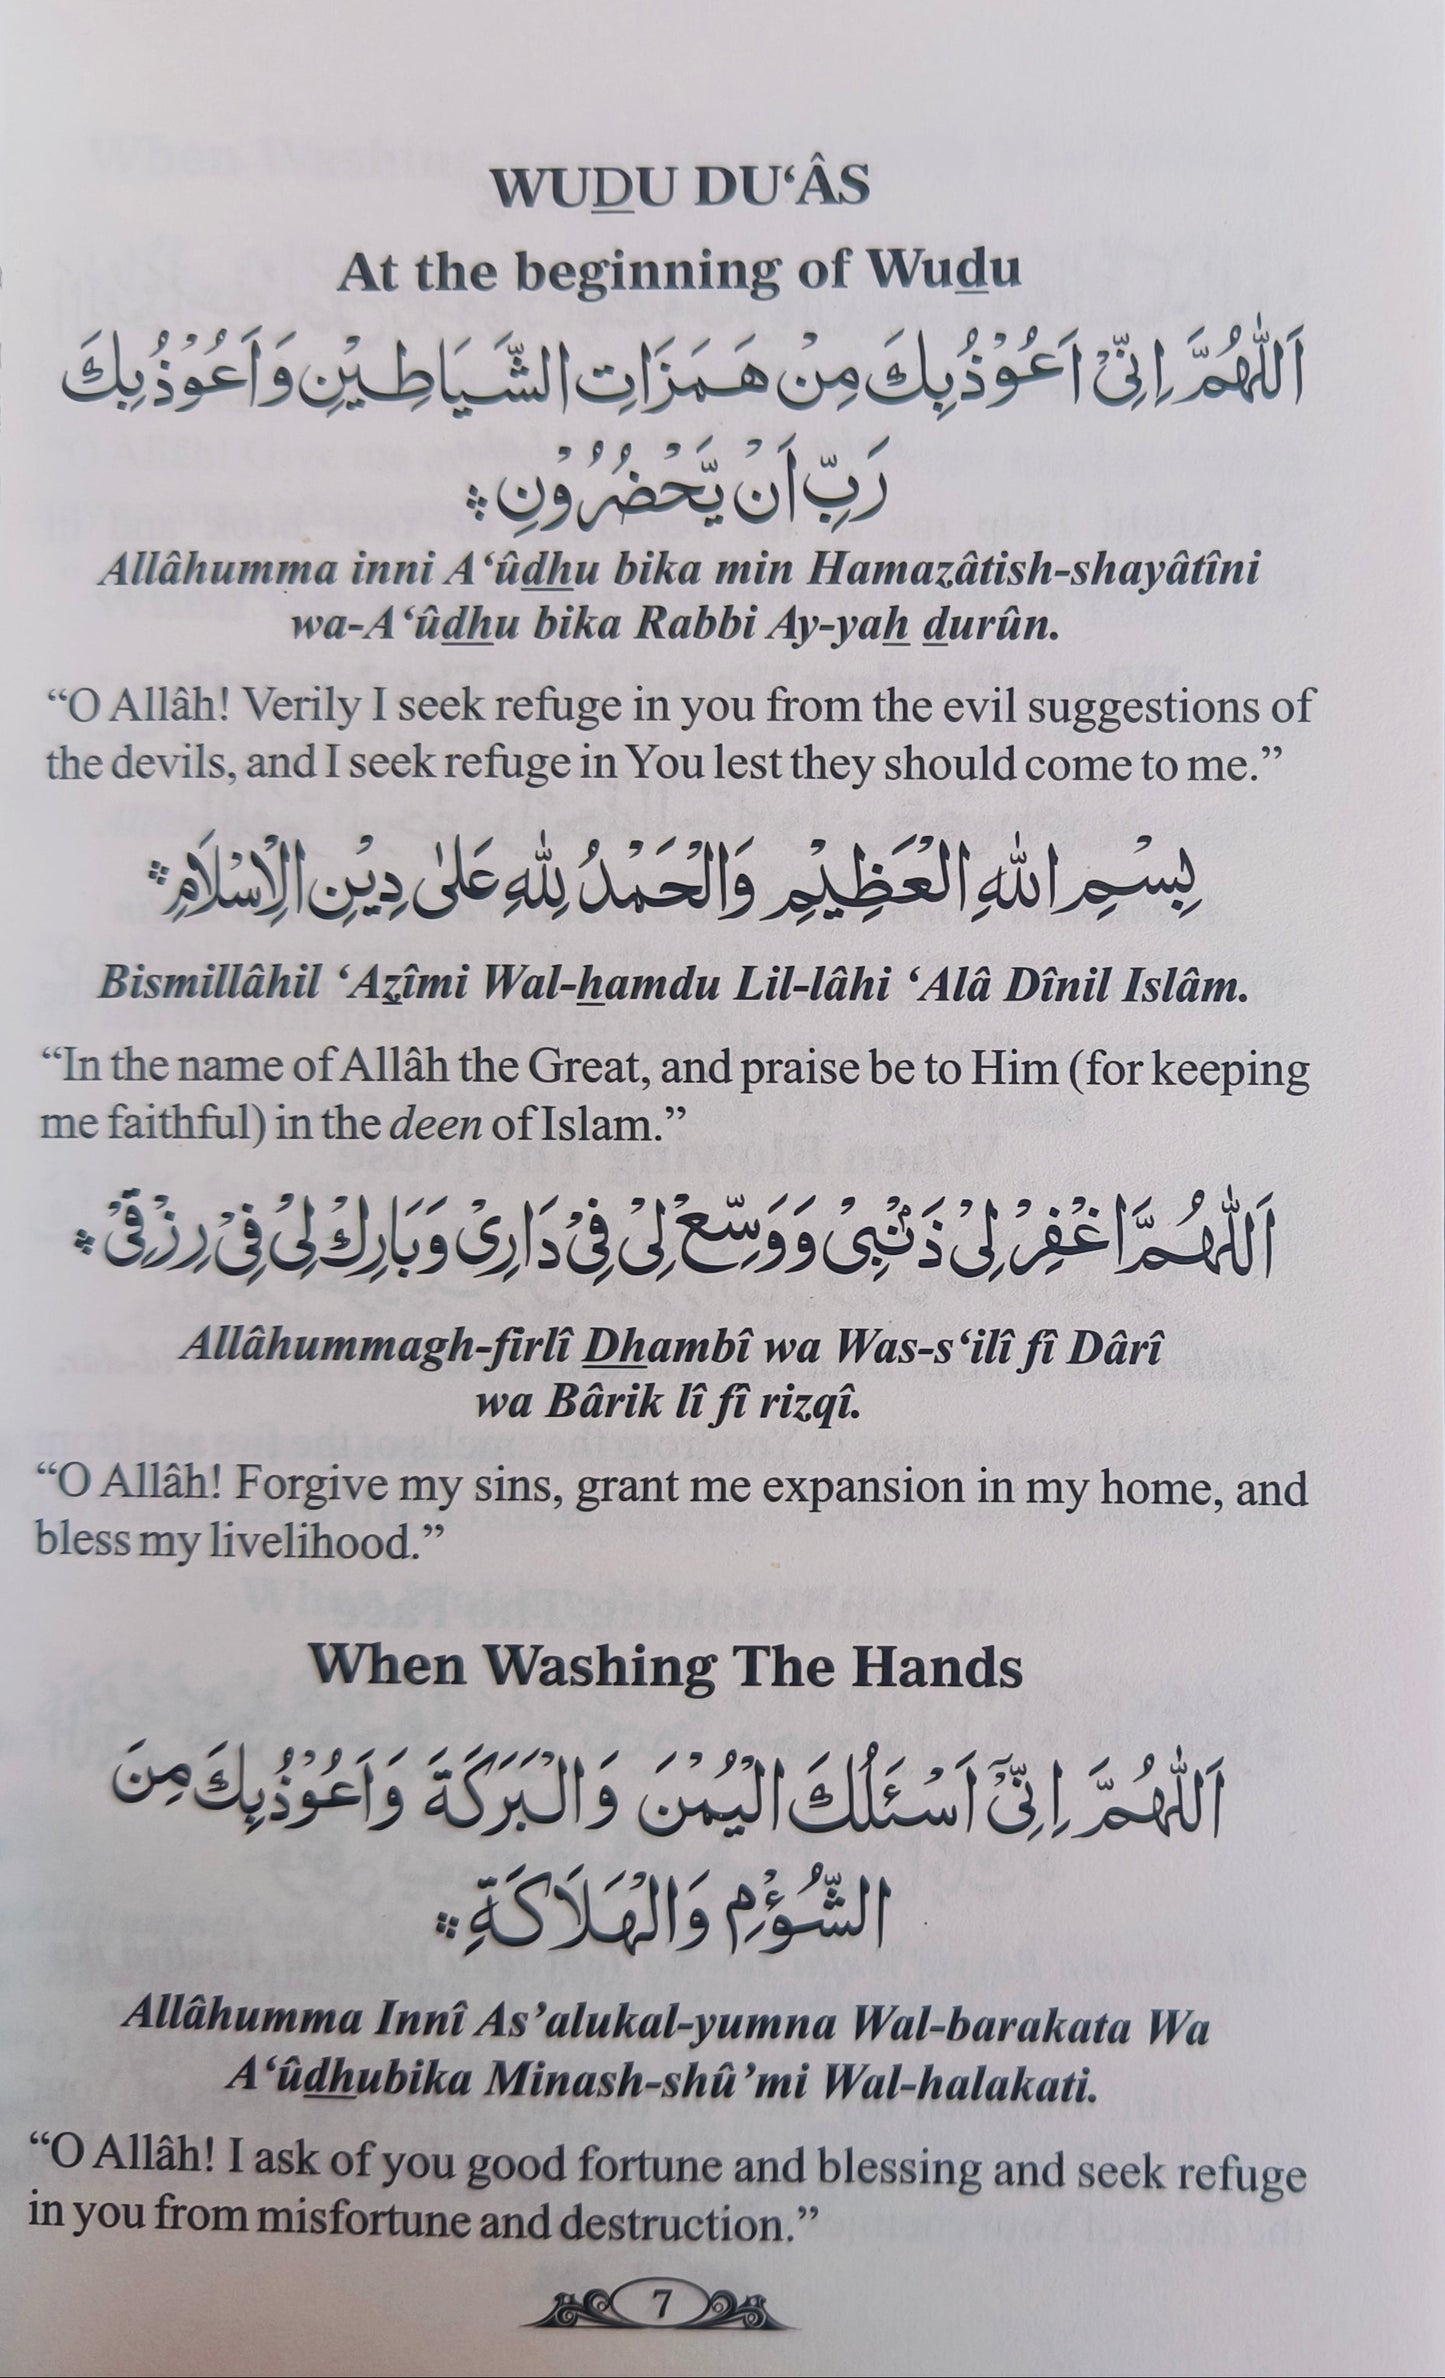 WUDU DU‘ÂS
At the beginning of Wudu
اَللّٰهُمَّ اِنِّىْ اَعُوْذُ بِكَ مِنْ هَمَزَاتِ الشَّيَاطِيْنِ وَاَعُوْذُ بِكَ
رَبِّ اَنْ يَّحْضُرُوْنِ ۞
Allâhumma inni A‘ûdhu bika min Hamazâtish-shayâtîni
wa-A‘ûdhu bika Rabbi Ay-yah durûn.
“O Allâh! Verily I seek refuge in you from the evil suggestions of
the devils, and I seek refuge in You lest they should come to me.”
بِسْمِ اللّٰهِ الْعَظِيْمِ وَالْحَمْدُ لِلّٰهِ عَلٰى دِيْنِ الْاِسْلَامِ ۞
Bismillâhil ‘Azîmi Wal-hamdu Lil-lâhi ‘Alâ Dînil Islâm.
“In the name of Allâh the Great, and praise be to Him (for keeping
me faithful) in the deen of Islam.”
اَللّٰهُمَّ اغْفِرْ لِىْ ذَنْۢبِىْ وَوَسِّعْ لِىْ فِىْ دَارِىْ وَبَارِكْ لِىْ فِىْ رِزْقِىْ ۞
Allâhummagh-firlî Dhambî wa Was-s‘ilî fî Dârî
wa Bârik lî fî rizqî.
“O Allâh! Forgive my sins, grant me expansion in my home, and
bless my livelihood.”
When Washing The Hands
اَللّٰهُمَّ اِنِّىْٓ اَسْئَلُكَ الْيُمْنَ وَالْبَرَكَةَ وَاَعُوْذُ بِكَ مِنَ
الشُّؤْمِ وَالْهَلَاكَةِ ۞
Allâhumma Innî As’alukal-yumna Wal-barakata Wa
A‘ûdhubika Minash-shû’mi Wal-halakati.
“O Allâh! I ask of you good fortune and blessing and seek refuge
in you from misfortune and destruction.”
7